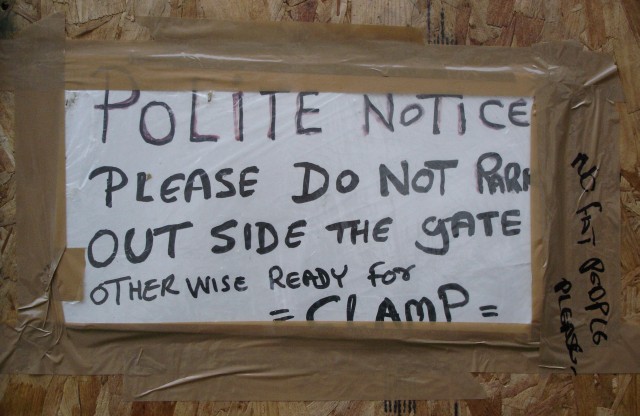 POLITE NOTICE
PLEASE DO NOT PARK
OUT SIDE THE GATE
OTHERWISE READY FOR
= CLAMP =
NO FAT PEOPLE
PLEASE.